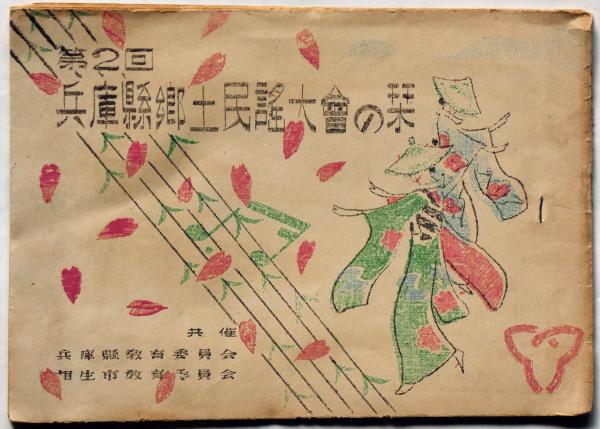 第2回
兵庫縣鄕土民謠大會の栞
共催
兵庫縣教育委員会
相生市教育委員会